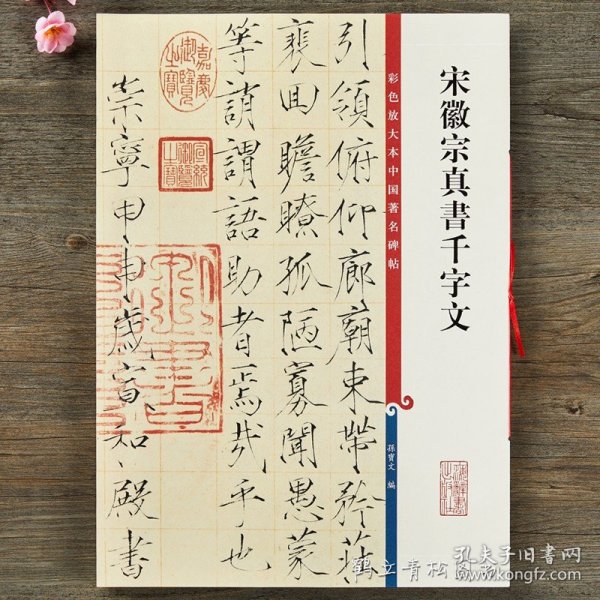 宋徽宗真書千字文
彩色放大本中国著名碑帖
孫寶文 編
引領俯仰廊廟束帶矜莊
裵回瞻瞭孤陋寡聞愚蒙
等誚謂語助者焉哉乎也
崇寧甲申歲宣和殿書
嘉慶御覽之寶
宣統御覽之寶
鶴立青松
孔夫子旧书网
www.kongfz.com